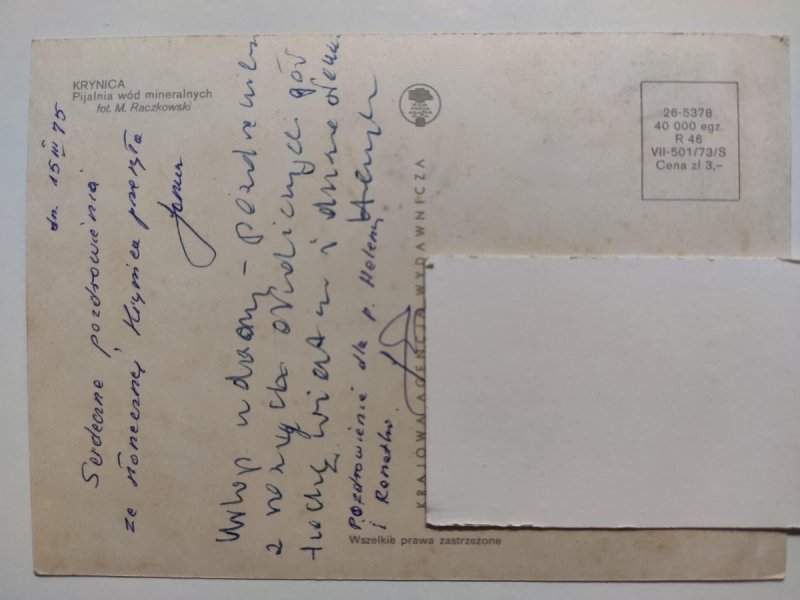 KRYNICA
Pijalnia wód mineralnych
fot. M. Raczkowski
dn. 15 III 75
Serdeczne pozdrowienia
ze słonecznej Krynicy przesyła
Urlop udany – Pozdrowienia
z naszych ślicznych gór
trochę i
Pozdrowienia dla p. Heleny
i Renatki
Henryk
KRAJOWA AGENCJA WYDAWNICZA
26-5378
40 000 egz.
R 46
VII-501/73/S
Cena zł 3,–
Wszelkie prawa zastrzeżone